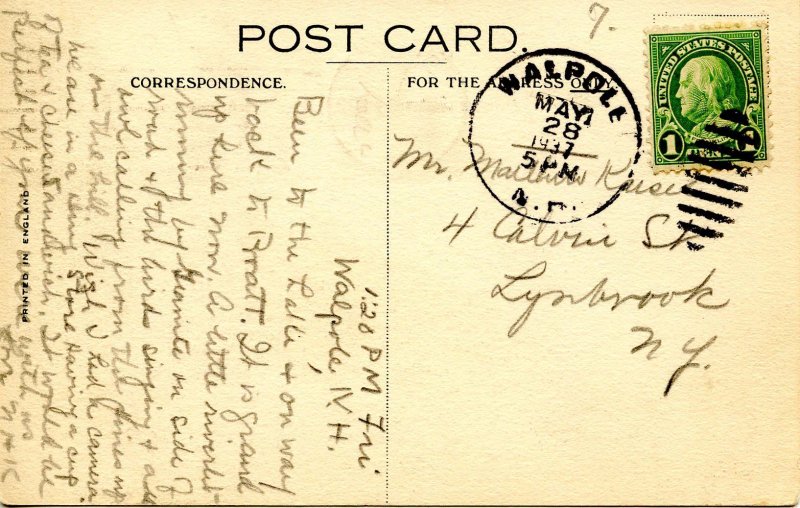 7.
POST CARD.
CORRESPONDENCE.
FOR THE ADDRESS ONLY
UNITED STATES POSTAGE
1
WALPOLE
MAY
28
1937
5 PM
N.H.
Mr. Matthew
4 Calvin St
Lynbrook
N.Y.
PRINTED IN ENGLAND
1:20 PM Fri
Walpole, N.H.
Been to the Lake & on way
back to Bratt. It is grand
up here now. A little
running by on side of
road & the birds singing & an
owl calling from the pines up
on the hill. Wish I had the camera
we are in a store having a cup
of tea & cheese sandwich. It would be
perfect if you were with us